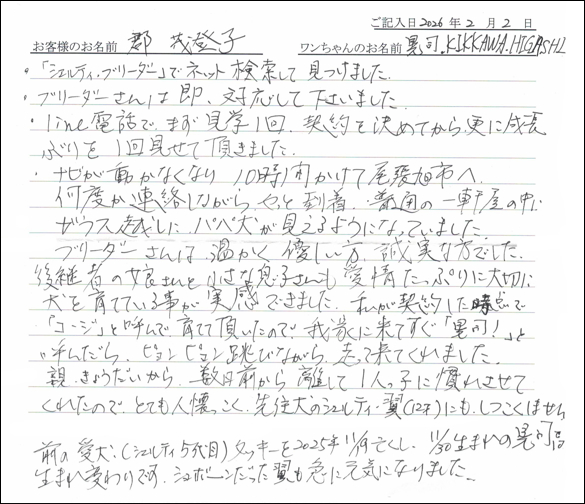 ご記入日 2026年2月2日
お客様のお名前 郡 茂澄子 ワンちゃんのお名前 晃司.KIKKAWA.HIGASHI
・「シェルティ・ブリーダー」でネット検索して見つけました.
・ブリーダーさんは即、対応して下さいました.
・line電話で、まず見学1回、契約を決めてから更に成長
ぶりを1回見せて頂きました.
・ナビが動かなくなり 10時間かけて尾張旭市へ.
何度か連絡しながらやっと到着. 普通の一軒屋の中に
ガラス越しに、パパ犬が見えるようになっていました.
ブリーダーさんは、温かく優しい方、誠実な方でした.
後継者の娘さんと小さな息子さんも愛情たっぷりに大切に
犬を育てている事が実感できました. 私が契約した時点で
「コージ」と呼んで育てて頂いたので 我家に来てすぐ「晃司!」と
呼んだら、ピョンピョン跳びながら、走って来てくれました.
親・きょうだいから、数日前から離して1人っ子に慣れさせて
くれたので、とても人懐っこく、先住犬のシェルティ・翼(12才)にも、しつこくはせん
前の愛犬、(シェルティ5代目)タッキーを2025年11/19亡くし、11/30生まれの晃司
生まれ変わりです. ションボーンだった翼も急に元気になりました.